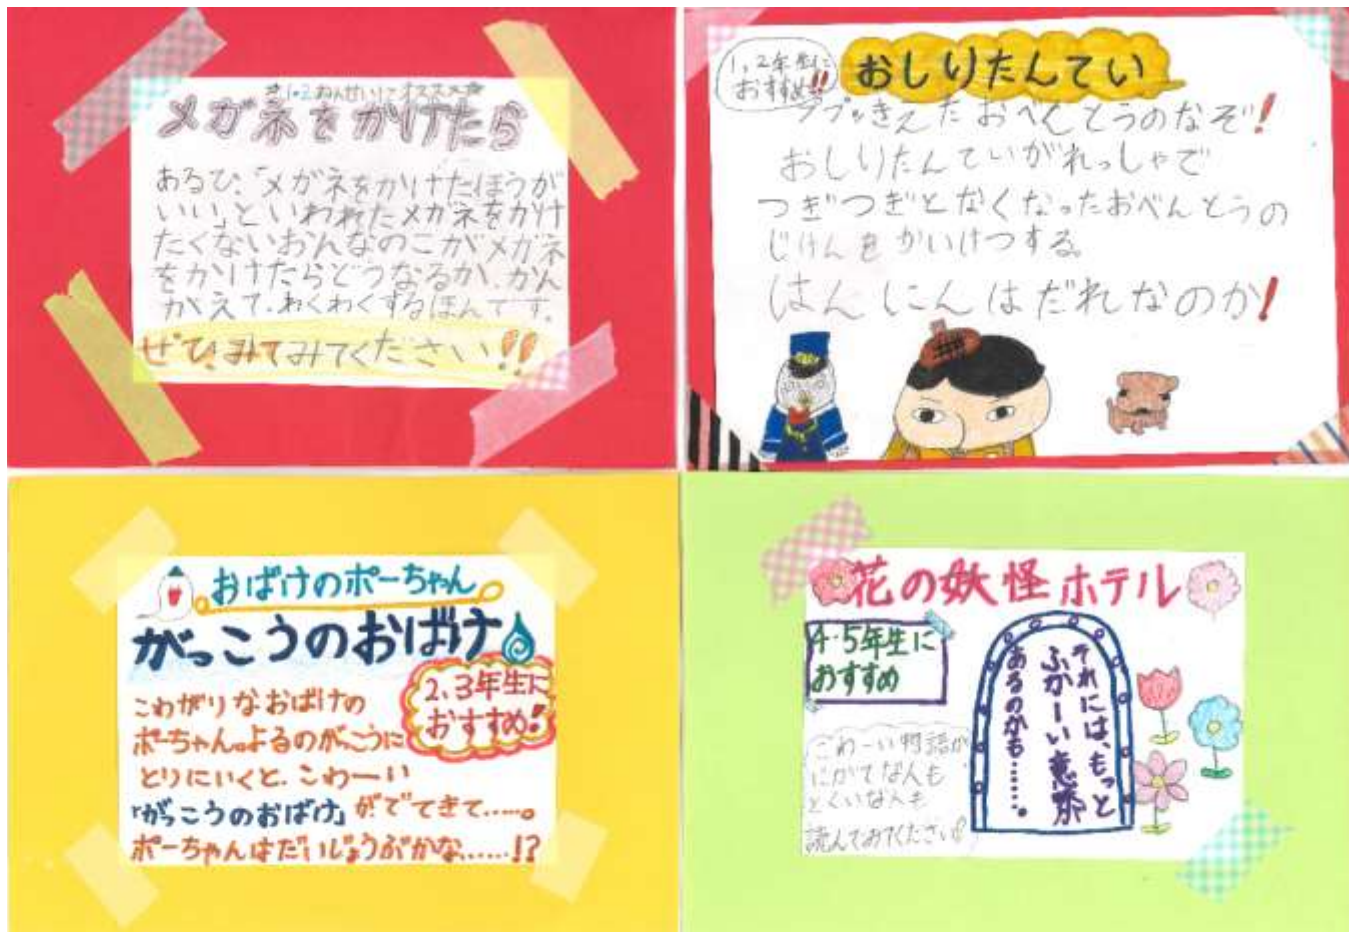 ☆1・2ねんせいにオススメ☆
メガネをかけたら
あるひ、「メガネをかけたほうが
いい」といわれたメガネをかけ
たくないおんなのこがメガネ
をかけたらどうなるか、かん
がえて、わくわくするほんです。
ぜひ、みてみてください!!
1、2年生に
おすすめ!!
おしりたんてい
ププッきえたおべんとうのなぞ!
おしりたんていがれっしゃで
つぎつぎとなくなったおべんとうの
じけんをかいけつする。
はんにんはだれなのか!
おばけのポーちゃん
がっこうのおばけ
2、3年生に
おすすめ!
こわがりなおばけの
ポーちゃん。よるのがっこうに
とりにいくと、こわーい
「がっこうのおばけ」がでてきて……。
ポーちゃんはだいじょうぶかな……!?
花の妖怪ホテル
4・5年生に
おすすめ
それには、もっと
ふかーい意味が
あるのかも……。
こわーい物語が
にがてな人も
とくいな人も
読んでみてください!